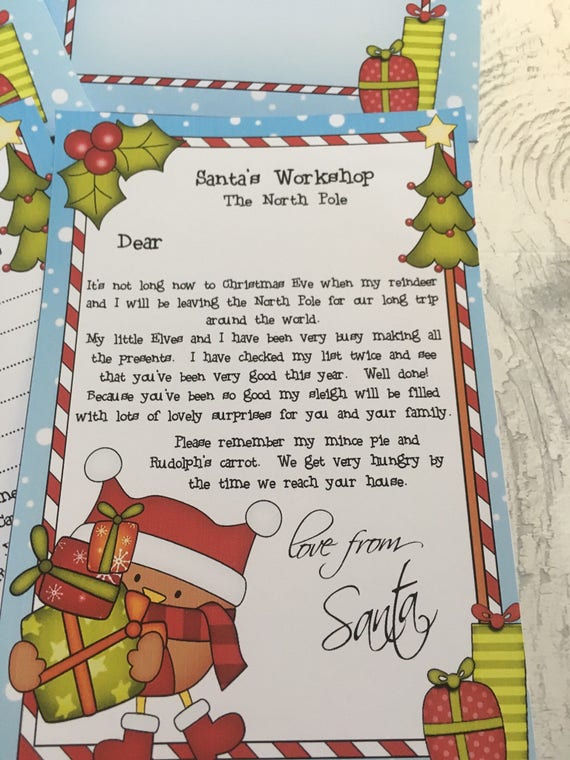 Santa's Workshop
The North Pole
Dear
It's not long now to Christmas Eve when my reindeer
and I will be leaving the North Pole for our long trip
around the world.
My little Elves and I have been very busy making all
the presents. I have checked my list twice and see
that you've been very good this year. Well done!
Because you've been so good my sleigh will be filled
with lots of lovely surprises for you and your family.
Please remember my mince pie and
Rudolph's carrot. We get very hungry by
the time we reach your house.
love from
Santa